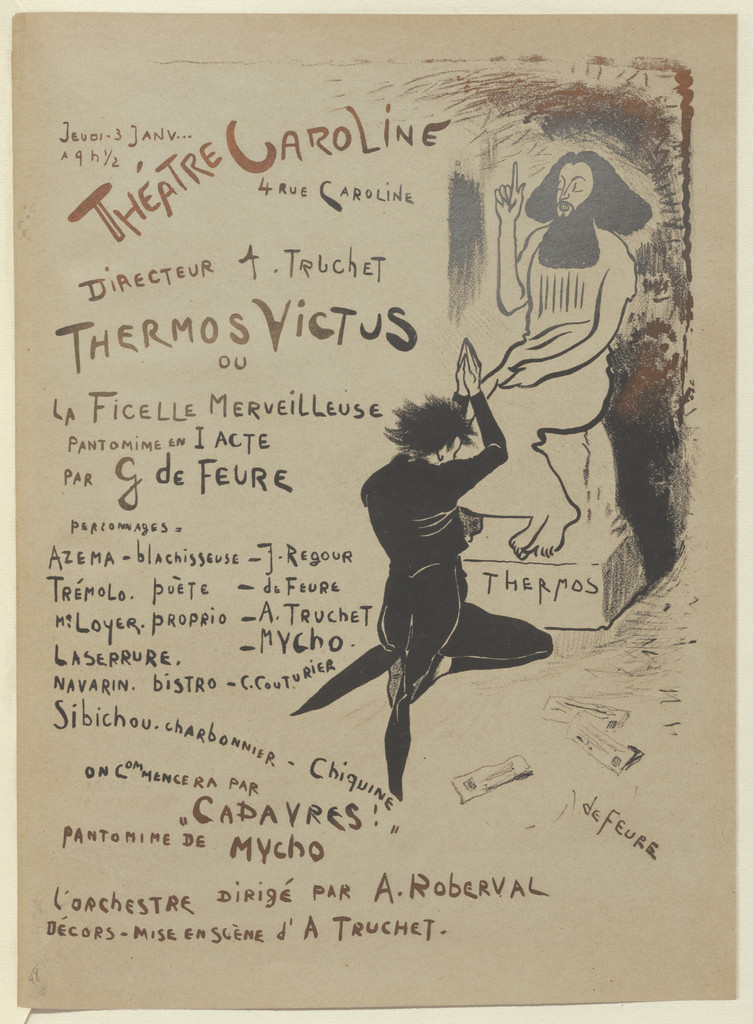 Jeudi-3 Janv...
A 9h 1/2
THÉATRE CAROLINE
4 RUE CAROLINE
DIRECTEUR A. TRUCHET
THERMOS VICTUS
OU
LA FICELLE MERVEILLEUSE
PANTOMIME EN I ACTE
PAR G de FEURE
PERSONNAGES =
AZEMA - blachisseuse - J. REGOUR
TRÉMOLO. poète - de FEURE
Mr LOYER. PROPRIO - A. TRUCHET
LASERRURE. - MYCHO.
NAVARIN. bistro - C. COUTURIER
Sibichou. charbonnier - Chiquine
ON COMMENCERA PAR
„CADAVRES!„
PANTOMIME DE MYCHO
L'ORCHESTRE DIRIGÉ PAR A. ROBERVAL
DÉCORS - MISE EN SCÈNE d'A TRUCHET.
THERMOS
de FEURE
48